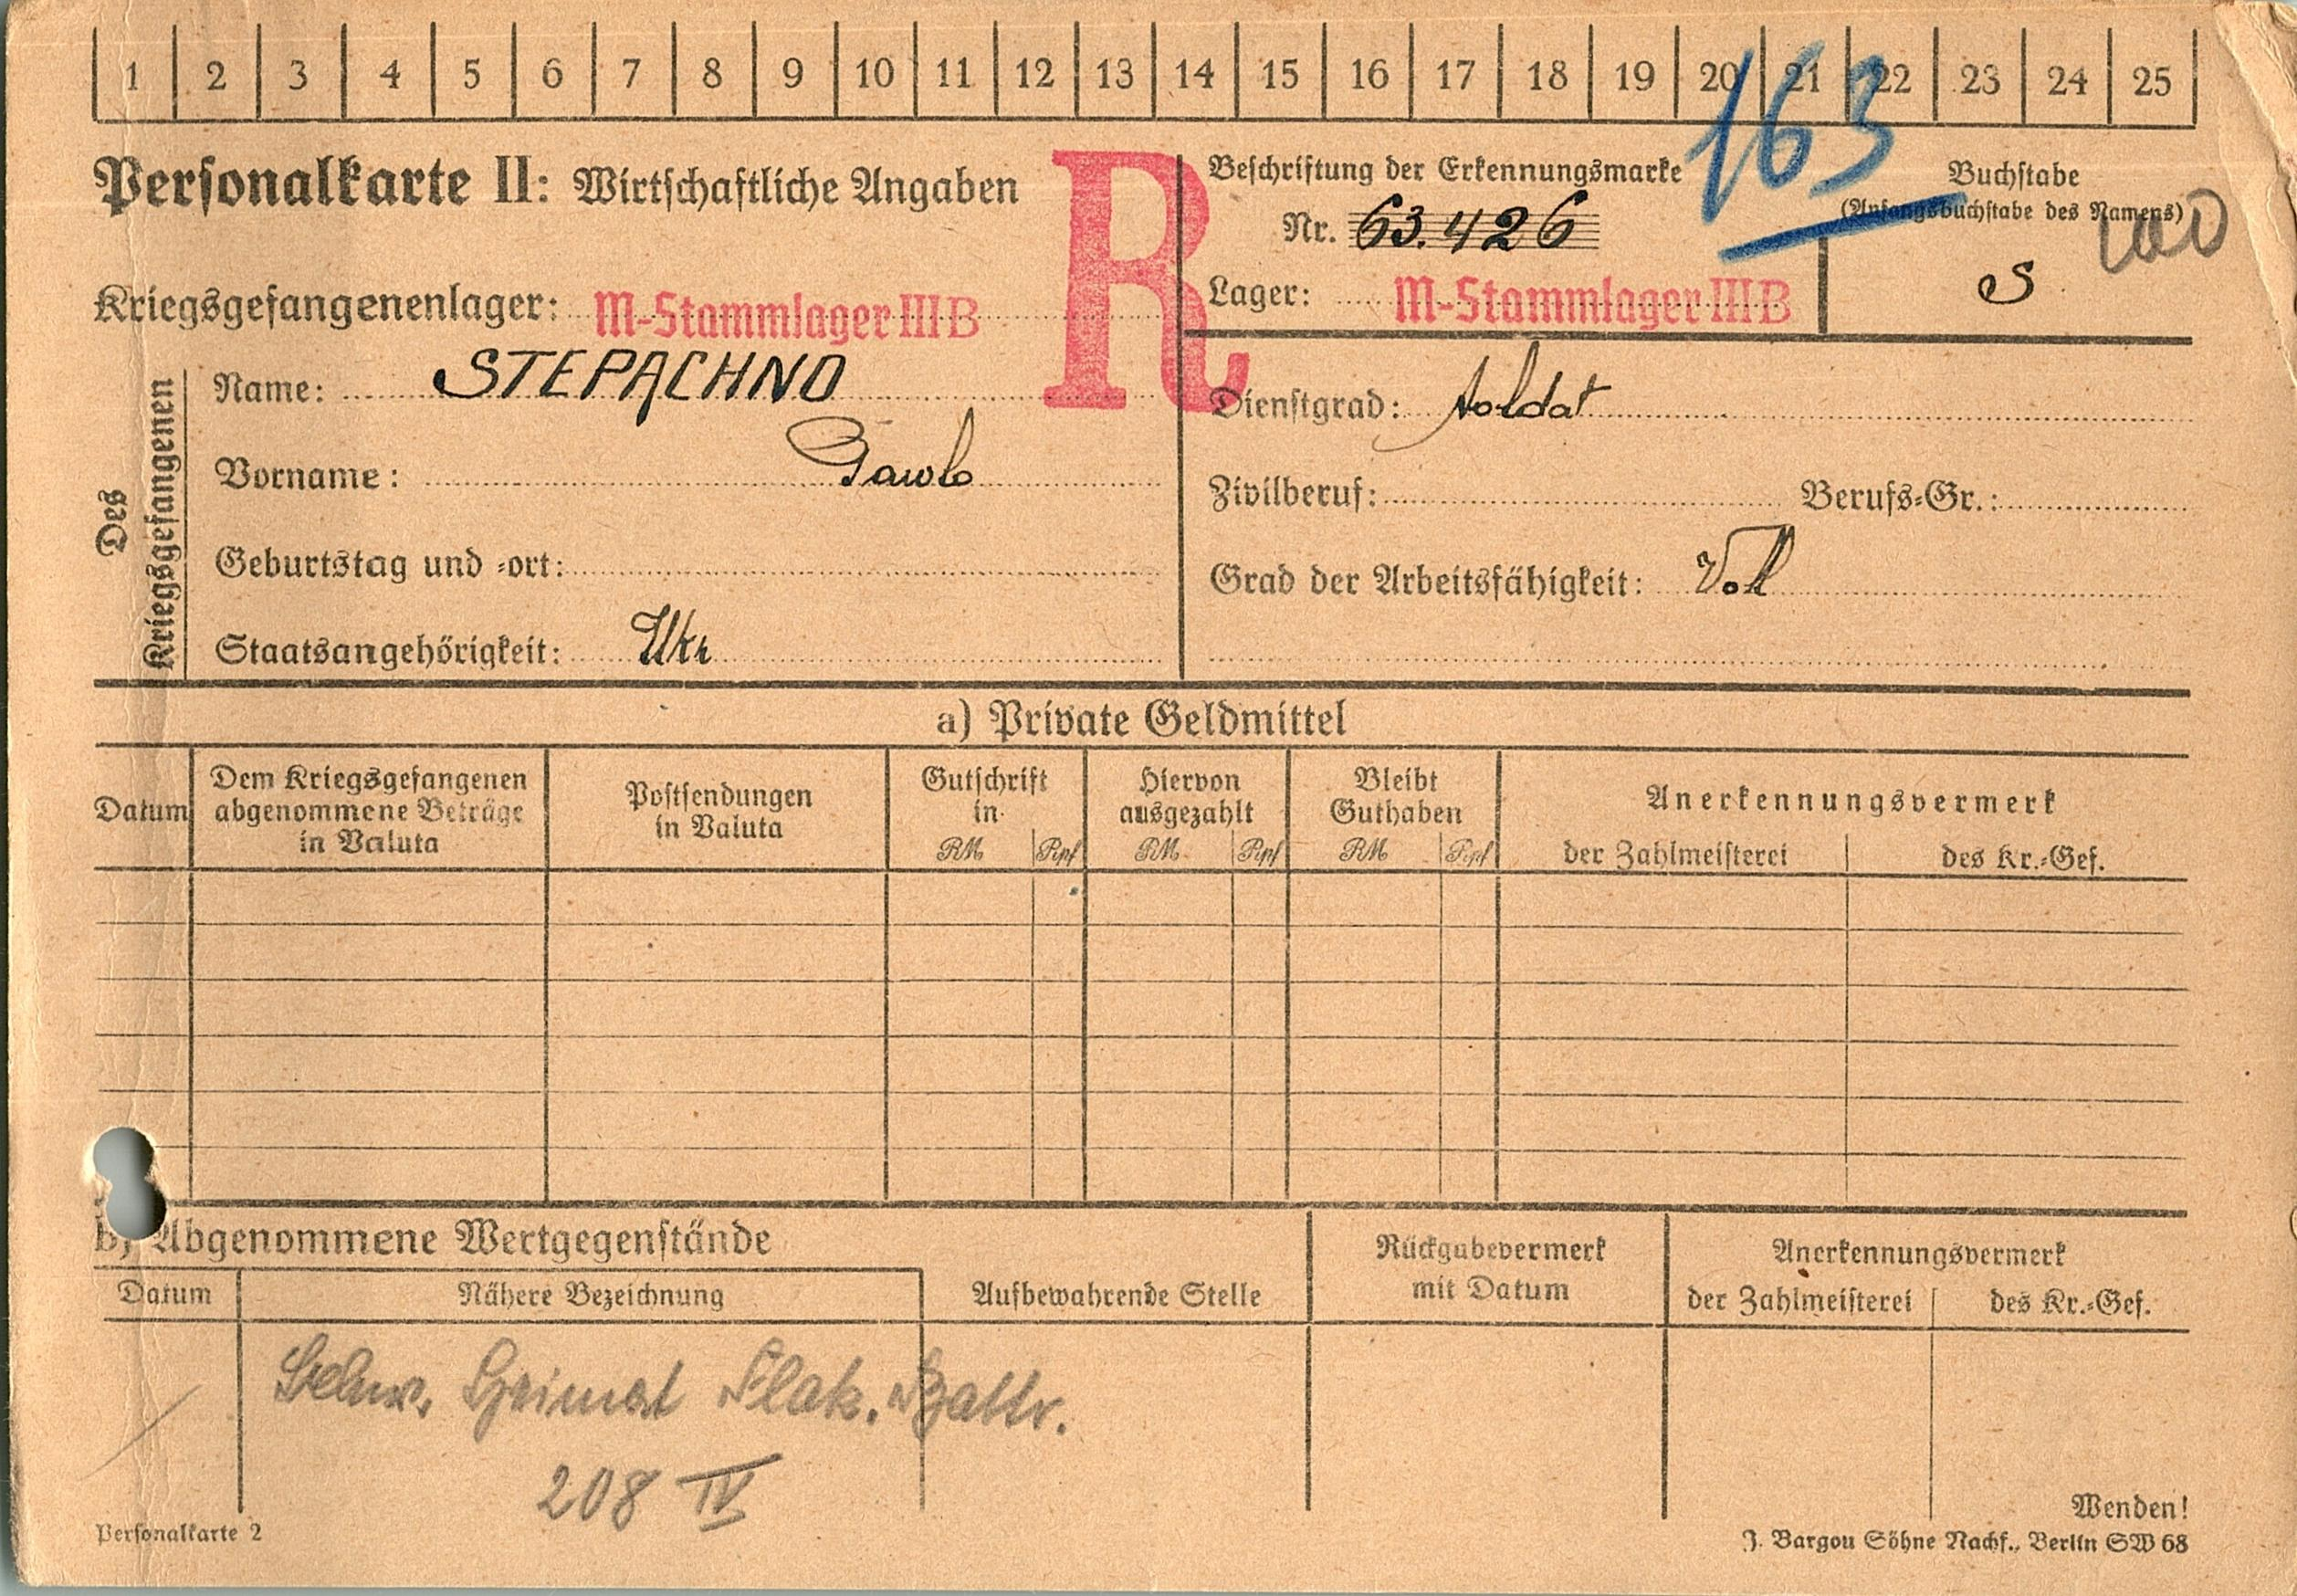 1 2 3 4 5 6 7 8 9 10 11 12 13 14 15 16 17 18 19 20 21 22 23 24 25
163
Personalkarte II: Wirtschaftliche Angaben
R
Beschriftung der Erkennungsmarke
Nr. 63.426
Lager: M-Stammlager III B
Buchstabe
(Anfangsbuchstabe des Namens)
S
Kriegsgefangenenlager: M-Stammlager III B
Des Kriegsgefangenen
Name: STEPACHNO
Vorname: Pawlo
Geburtstag und -ort:
Staatsangehörigkeit: Ukr
Dienstgrad: Soldat
Zivilberuf: Berufs-Gr.:
Grad der Arbeitsfähigkeit: Voll
a) Private Geldmittel
Datum
Dem Kriegsgefangenen
abgenommene Beträge
in Valuta
Postsendungen
in Valuta
Gutschrift
in
RM Rpf
Hiervon
ausgezahlt
RM Rpf
Bleibt
Guthaben
RM Rpf
Anerkennungsvermerk
der Zahlmeisterei des Kr.-Gef.
b) Abgenommene Wertgegenstände
Datum
Nähere Bezeichnung
Aufbewahrende Stelle
Rückgabevermerk
mit Datum
Anerkennungsvermerk
der Zahlmeisterei des Kr.-Gef.
Schw. Heimat Flak. Battr.
208 IV
Wenden!
Personalkarte 2
J. Bargou Söhne Nachf., Berlin SW 68